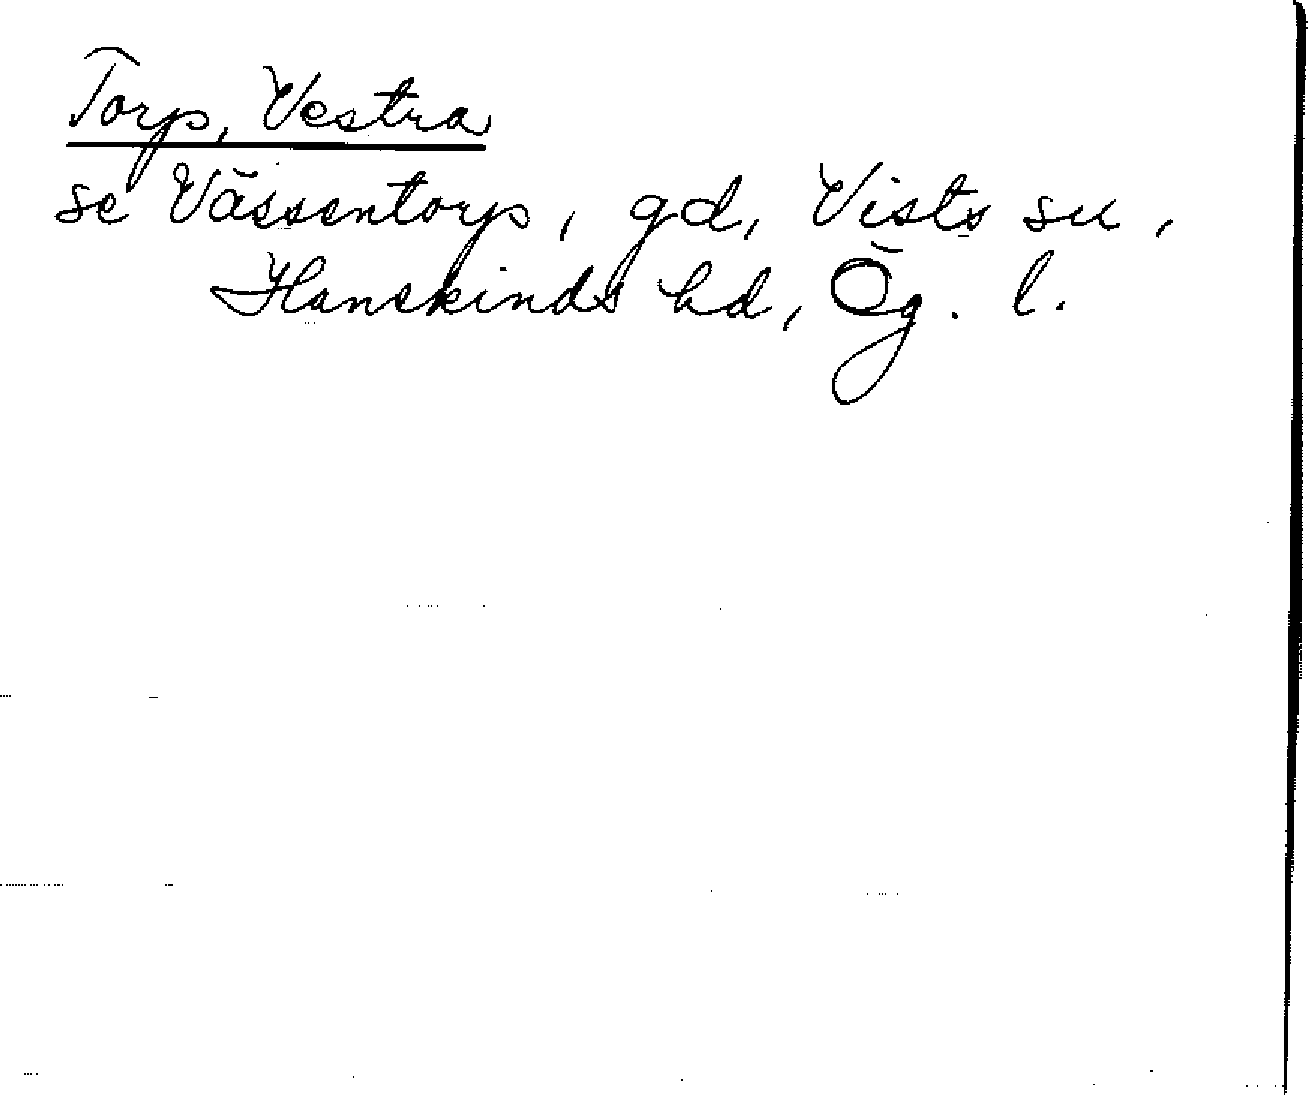 Torp, Vestra
se Vässentorp, gd, Vists sn,
Hanekinds hd, Ög. l.